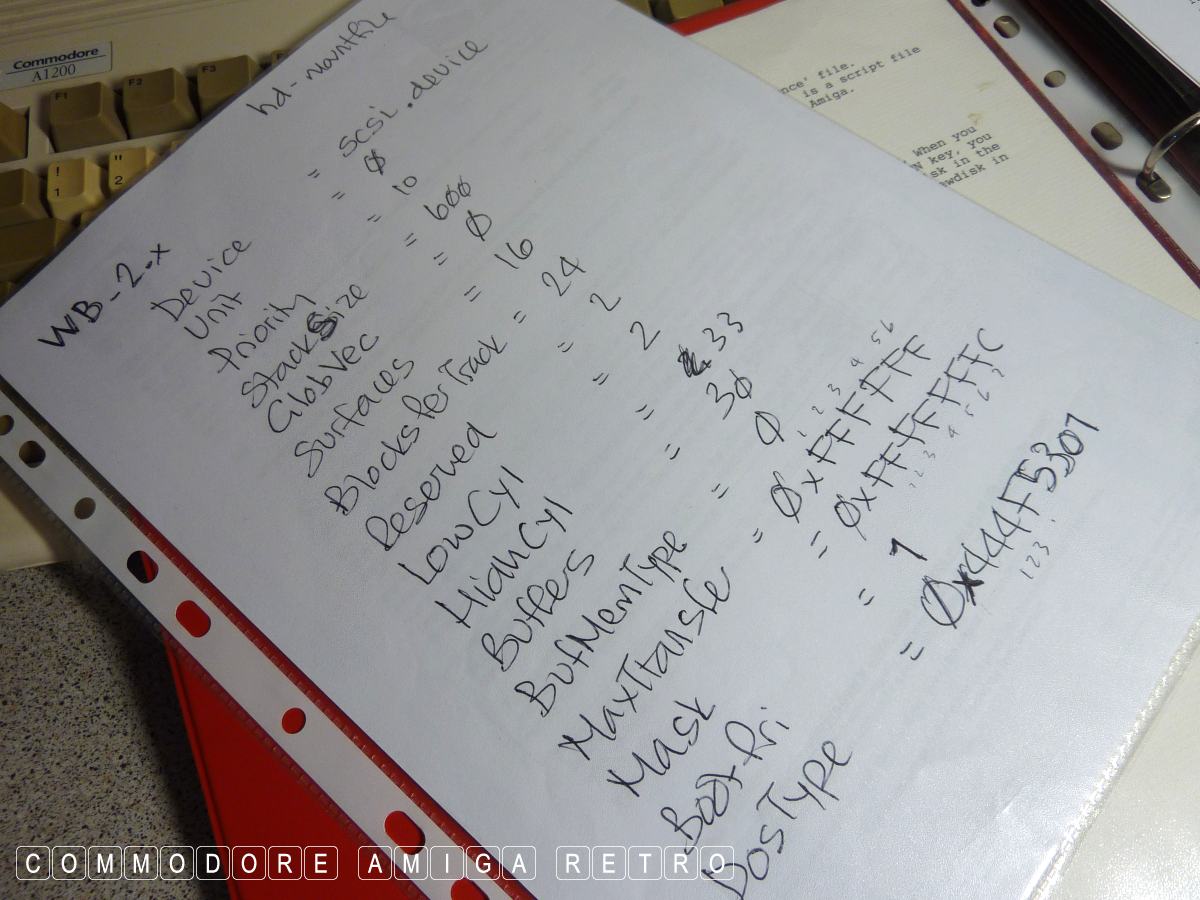 Commodore
A1200
F1
F2
F3
!
1
"
2
nce' file.
is a script file
Amiga.
When you
N key, you
sk in the
wdisk in
WB-2.x
Device = scsi.device
Unit = 0
Priority = 10
StackSize = 600
GlobVec = 0
Surfaces = 16
BlocksPerTrack = 24
Reserved = 2
LowCyl = 2
HighCyl = 33
Buffers = 30
BufMemType = 0
1 2 3 4 5 6
MaxTransfe = 0xFFFFFF
Mask = 0xFFFFFFFC
1 2 3 4 5 6 7
BootPri = 1
DosType = 0x444F5301
1 2 3
COMMODORE AMIGA RETRO